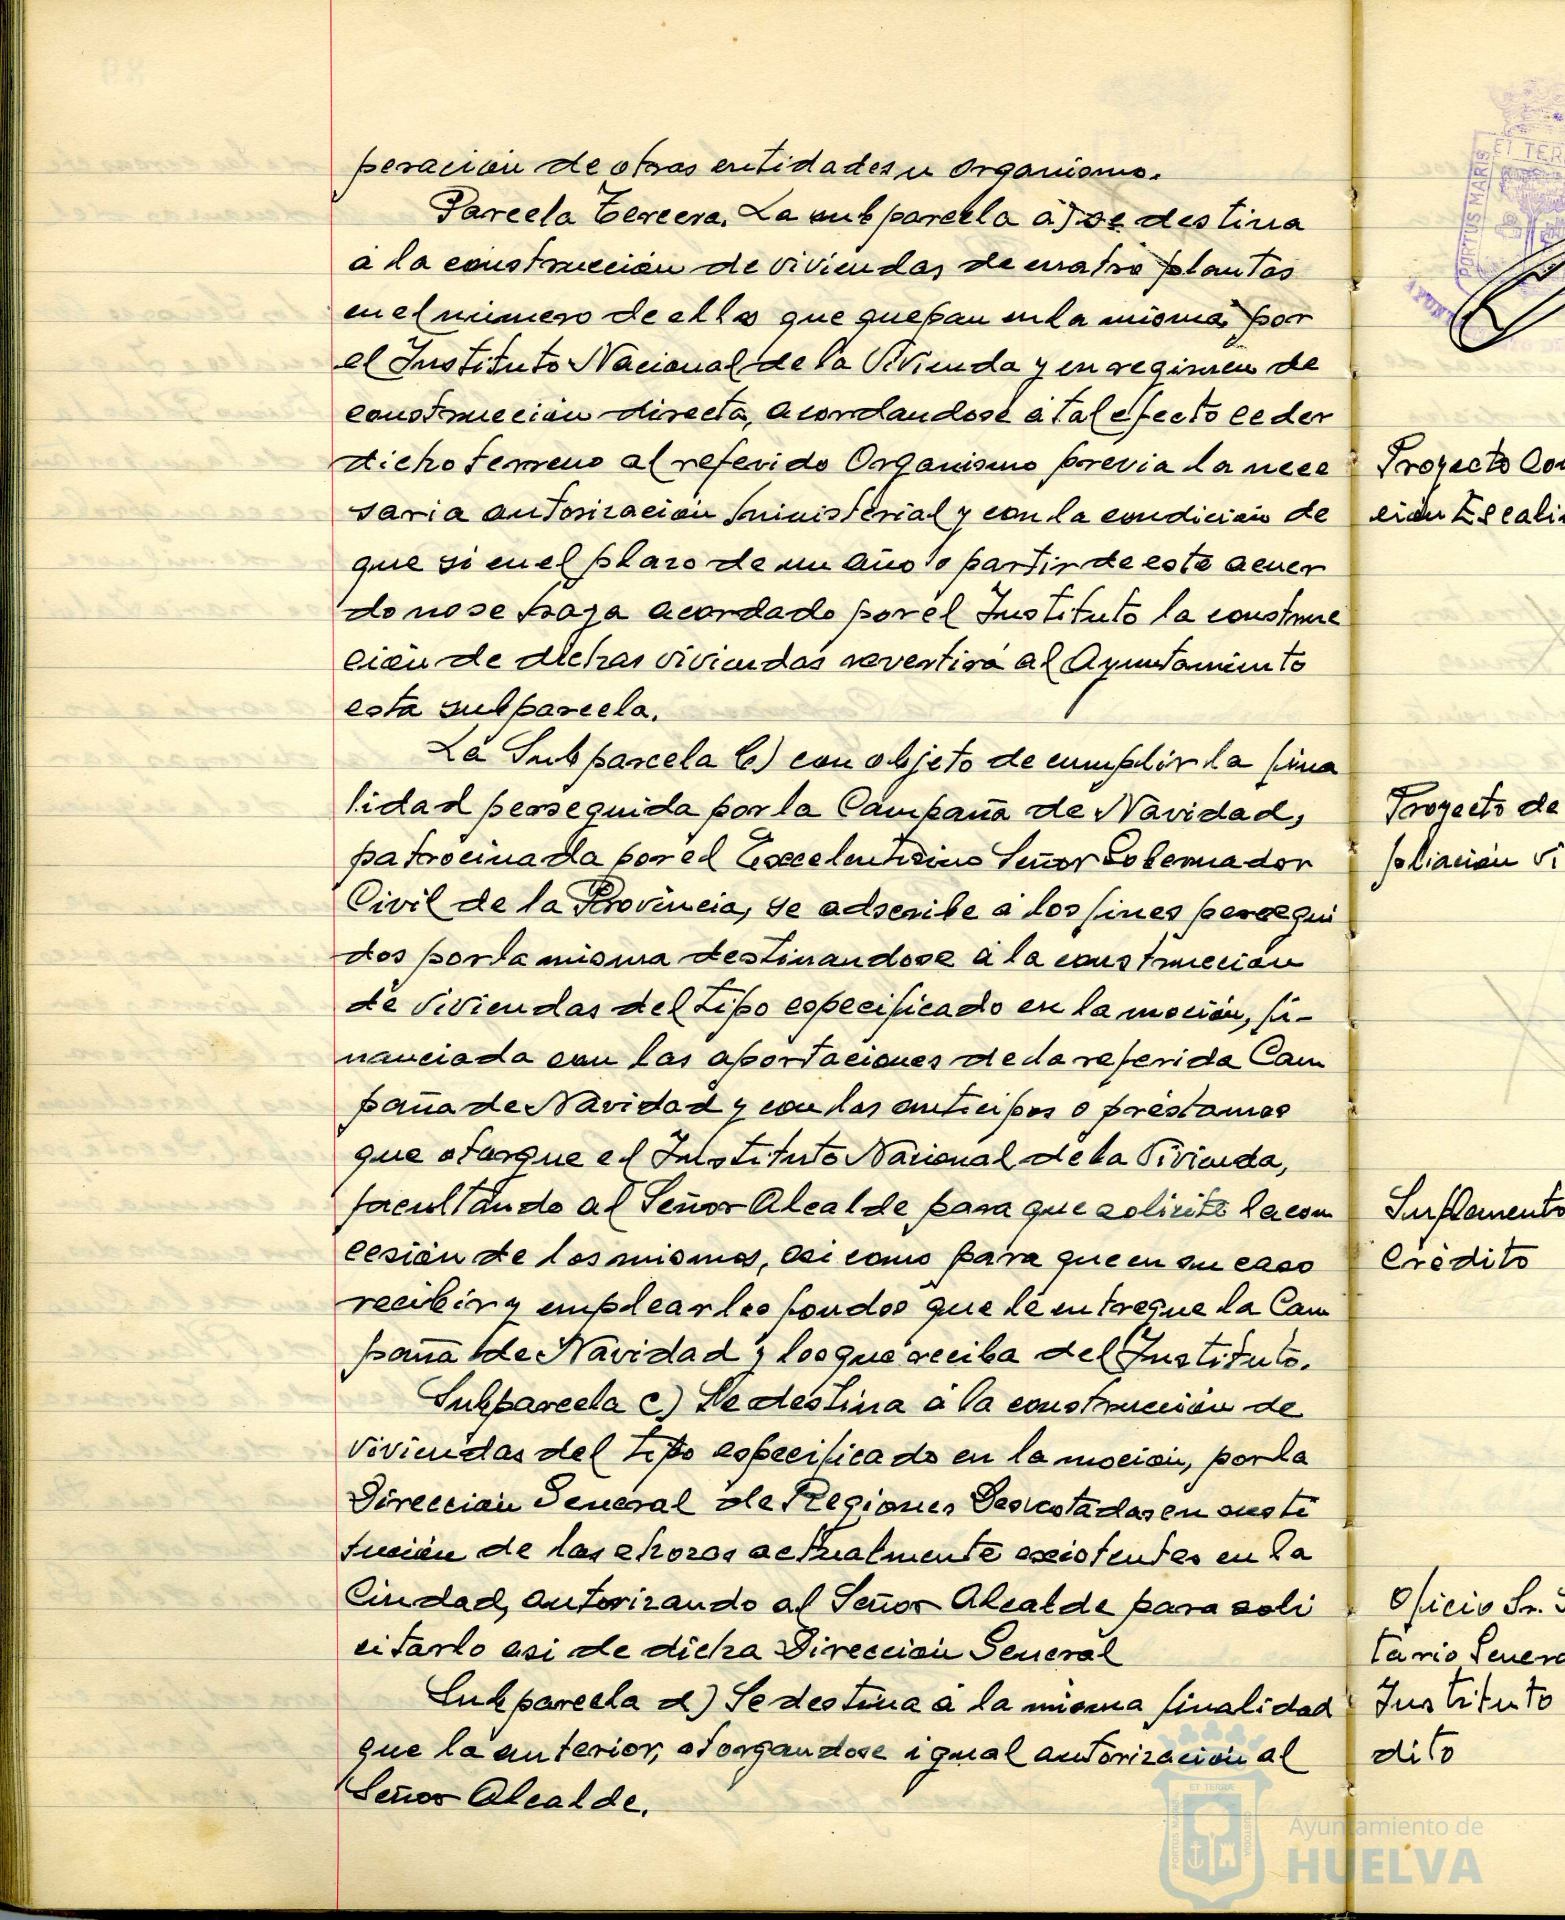 peración de otras entidades u organismo.
Parcela Tercera. La subparcela a) se destina
a la construcción de viviendas de cuatro plantas
en el número de ellas que quepan en la misma, por
el Instituto Nacional de la Vivienda y en regimen de
construcción directa, acordandose a tal efecto ceder
dicho terreno al referido Organismo previa la nece
saria autorización ministerial y con la condición de
que si en el plazo de un año a partir de este acuer
do no se haya acordado por el Instituto la construc
ción de dichas viviendas revertirá al Ayuntamiento
esta subparcela.
La Subparcela b) con objeto de cumplir la fina
lidad perseguida por la Campaña de Navidad,
patrocinada por el Excelentisimo Señor Gobernador
Civil de la Provincia, se adscribe a los fines persegui
dos por la misma destinandose a la construcción
de viviendas del tipo especificado en la moción, fi-
nanciada con las aportaciones de la referida Cam
paña de Navidad y con los anticipos o préstamos
que otorgue el Instituto Nacional de la Vivienda,
facultando al Señor Alcalde para que solicite la con
cesión de los mismos, asi como para que en su caso
recibir y emplear los fondos que le entregue la Cam
paña de Navidad y los que reciba del Instituto.
Subparcela c) Se destina a la construcción de
viviendas del tipo especificado en la moción, por la
Dirección General de Regiones Devastadas en susti
tución de las chozas actualmente existentes en la
Ciudad, autorizando al Señor Alcalde para soli
citarlo asi de dicha Dirección General
Subparcela d) Se destina a la misma finalidad
que la anterior, otorgandose igual autorización al
Señor Alcalde.
Proyecto Con
ción Escalin
Proyecto de
pliación vi
Suplemento
Crédito
Oficio Sr. S
tario Genera
Instituto
dito
ET TER
PORTUS MARIS
Ayuntamiento de
HUELVA